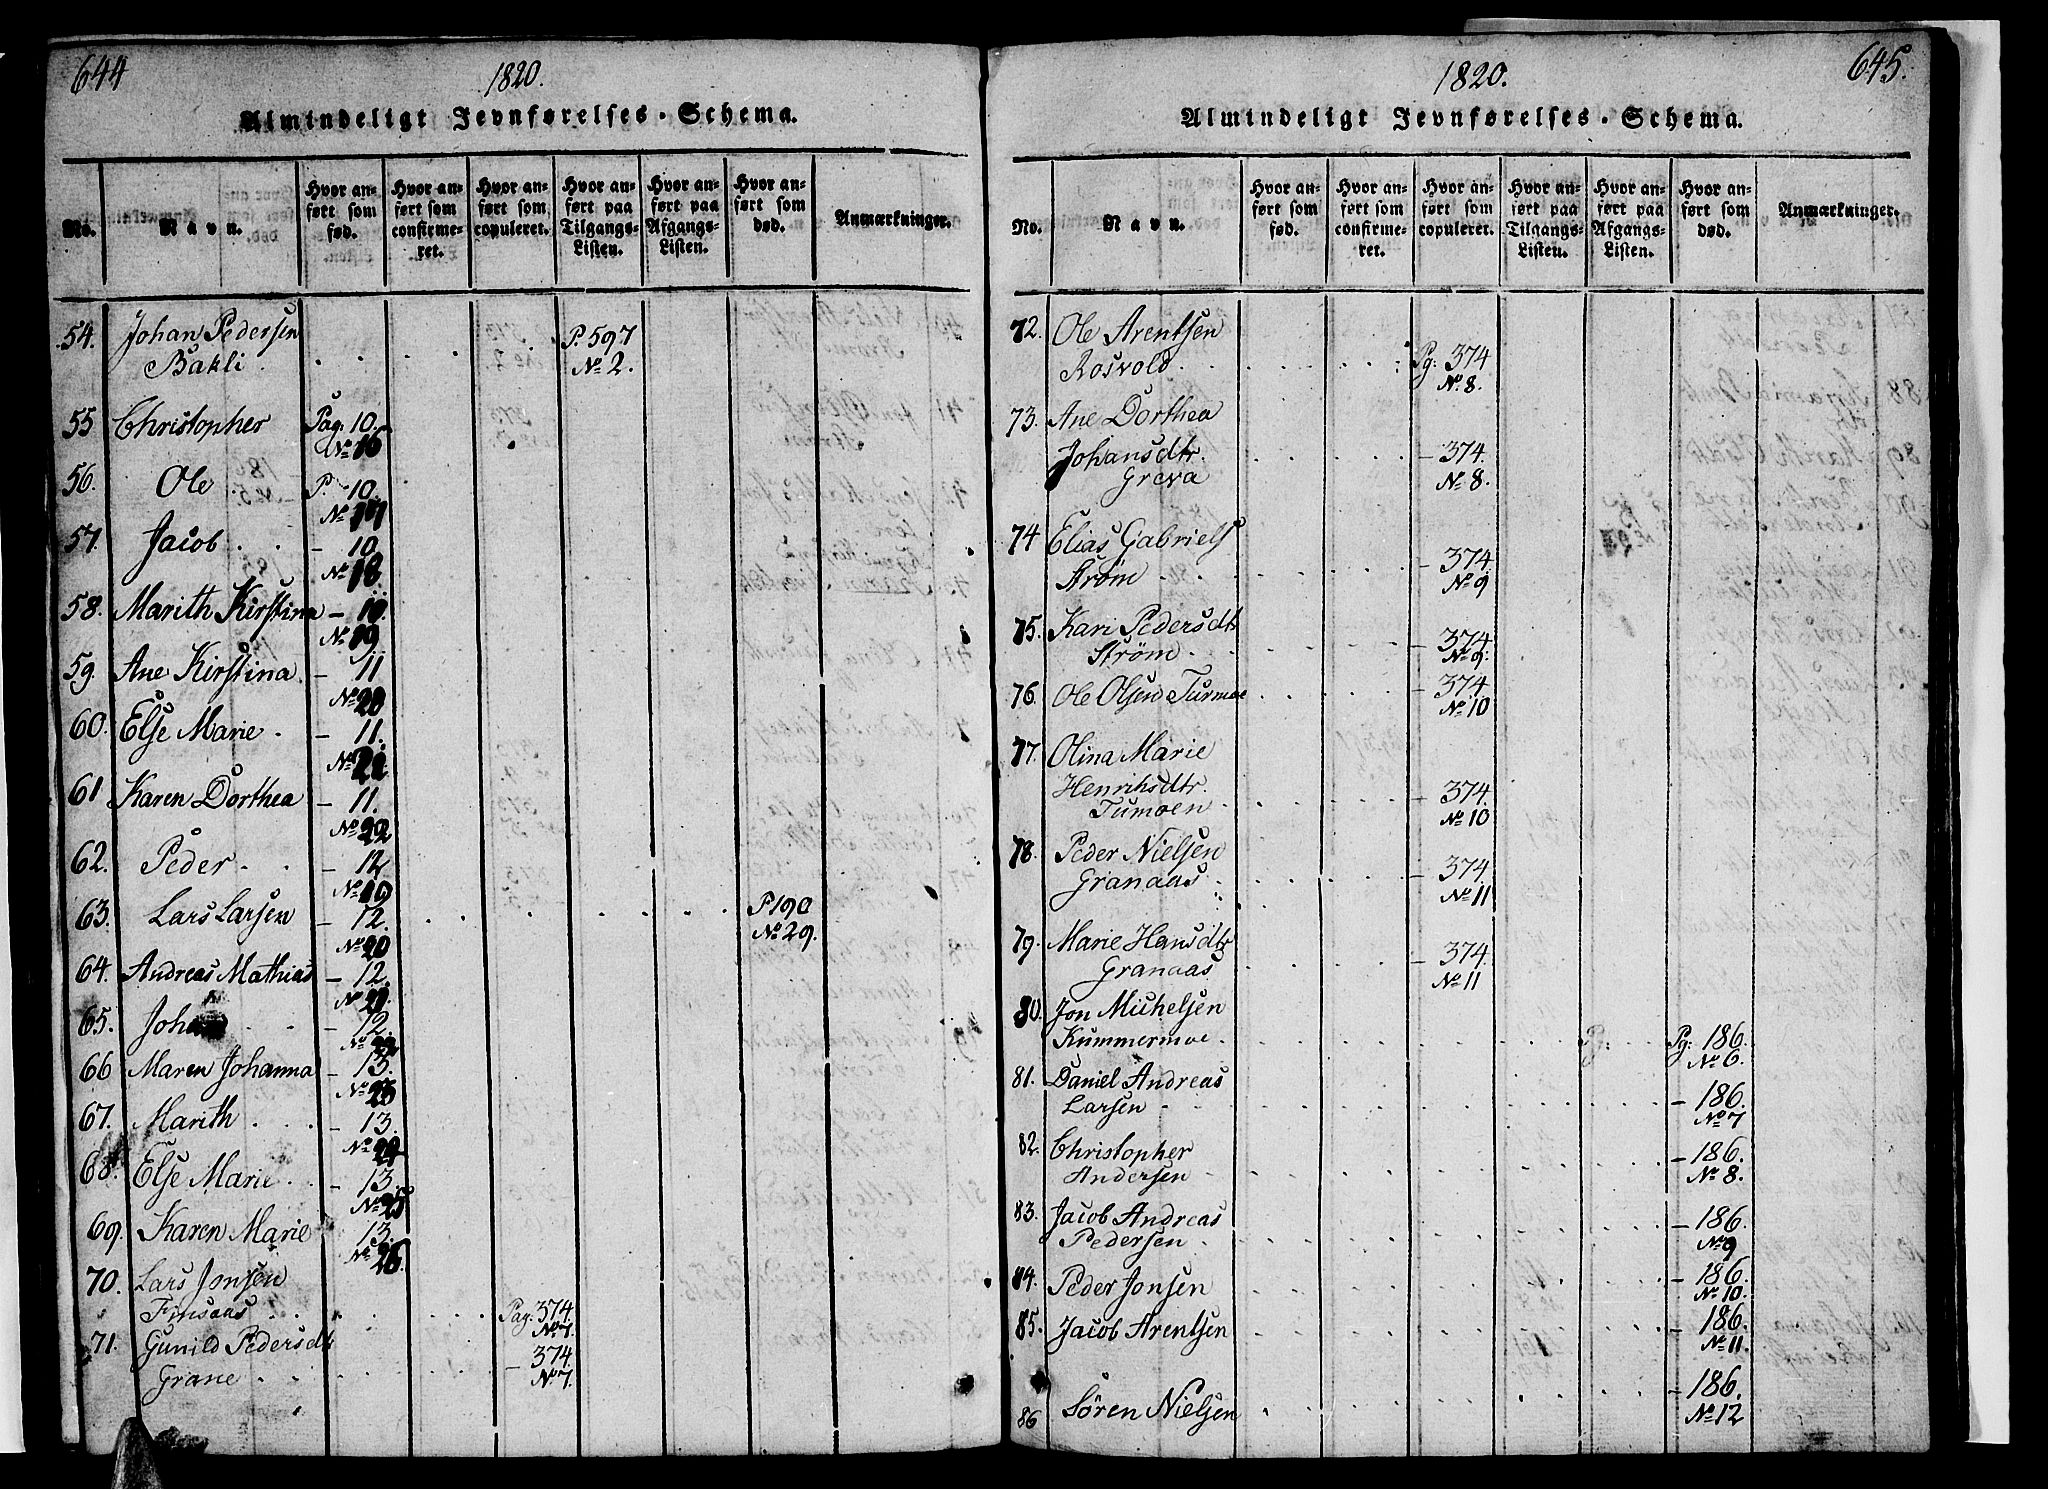 644
1820.
Almindeligt Jevnførelses-Schema.
No.
Navn.
Hvor anført som fød.
Hvor anført som confirmeret.
Hvor anført som copuleret.
Hvor anført paa Tilgangs-Listen.
Hvor anført paa Afgangs-Listen.
Hvor anført som død.
Anmærkninger.
54. Johan Pedersen
Bakli P. 597
No 2.
55 Christopher Pag. 10.
No 16
56. Ole P. 10.
No 17
57. Jacob – 10.
No 18
58. Marith Kirstina – 10.
No 19
59. Ane Kirstina – 11
No 20
60. Else Marie – 11.
No 21
61 Karen Dorthea – 11.
No 22
62. Peder – 12
No 19
63. Lars Larsen – 12. P 190
No 20 No 29.
64. Andreas Mathias – 12.
No 21.
65. Johan – 12.
No 22
66 Maren Johanna – 13.
No 23
67. Marith – 13.
No 24
68. Else Marie – 13.
No 25
69. Karen Marie 13.
No 26.
70. Lars Jonsen
Finsaas Pag. 374.
No 7.
71. Gunild Pedersdtr – 374.
Grane No 7.
645.
1820.
Almindeligt Jevnførelses-Schema.
No.
Navn.
Hvor anført som fød.
Hvor anført som confirmeret.
Hvor anført som copuleret.
Hvor anført paa Tilgangs-Listen.
Hvor anført paa Afgangs-Listen.
Hvor anført som død.
Anmærkninger.
72. Ole Arentsen
Rosvold Pg: 374
No 8.
73. Ane Dorthea
Johansdtr. – 374.
Greva No 8.
74 Elias Gabriels
Strøm – 374.
No 9
75. Kari Pedersdtr
Strøm – 374.
No 9.
76. Ole Olsen Turmoe – 374
No 10
77. Olina Marie
Henriksdtr. – 374.
Tumoen No 10
78. Peder Nielsen
Granaas – 374.
No 11
79. Marie Hansdtr
Granaas – 374.
No 11
80. Jon Michelsen
Kummermoe Pg: Pg: 186.
No 6.
81. Daniel Andreas
Larsen – 186.
No 7
82. Christopher
Andersen – 186.
No 8.
83. Jacob Andreas
Pedersen – 186.
No 9
84. Peder Jonsen – 186.
No 10.
85. Jacob Arentsen – 186.
No 11.
86 Sören Nielsen – 186.
No 12